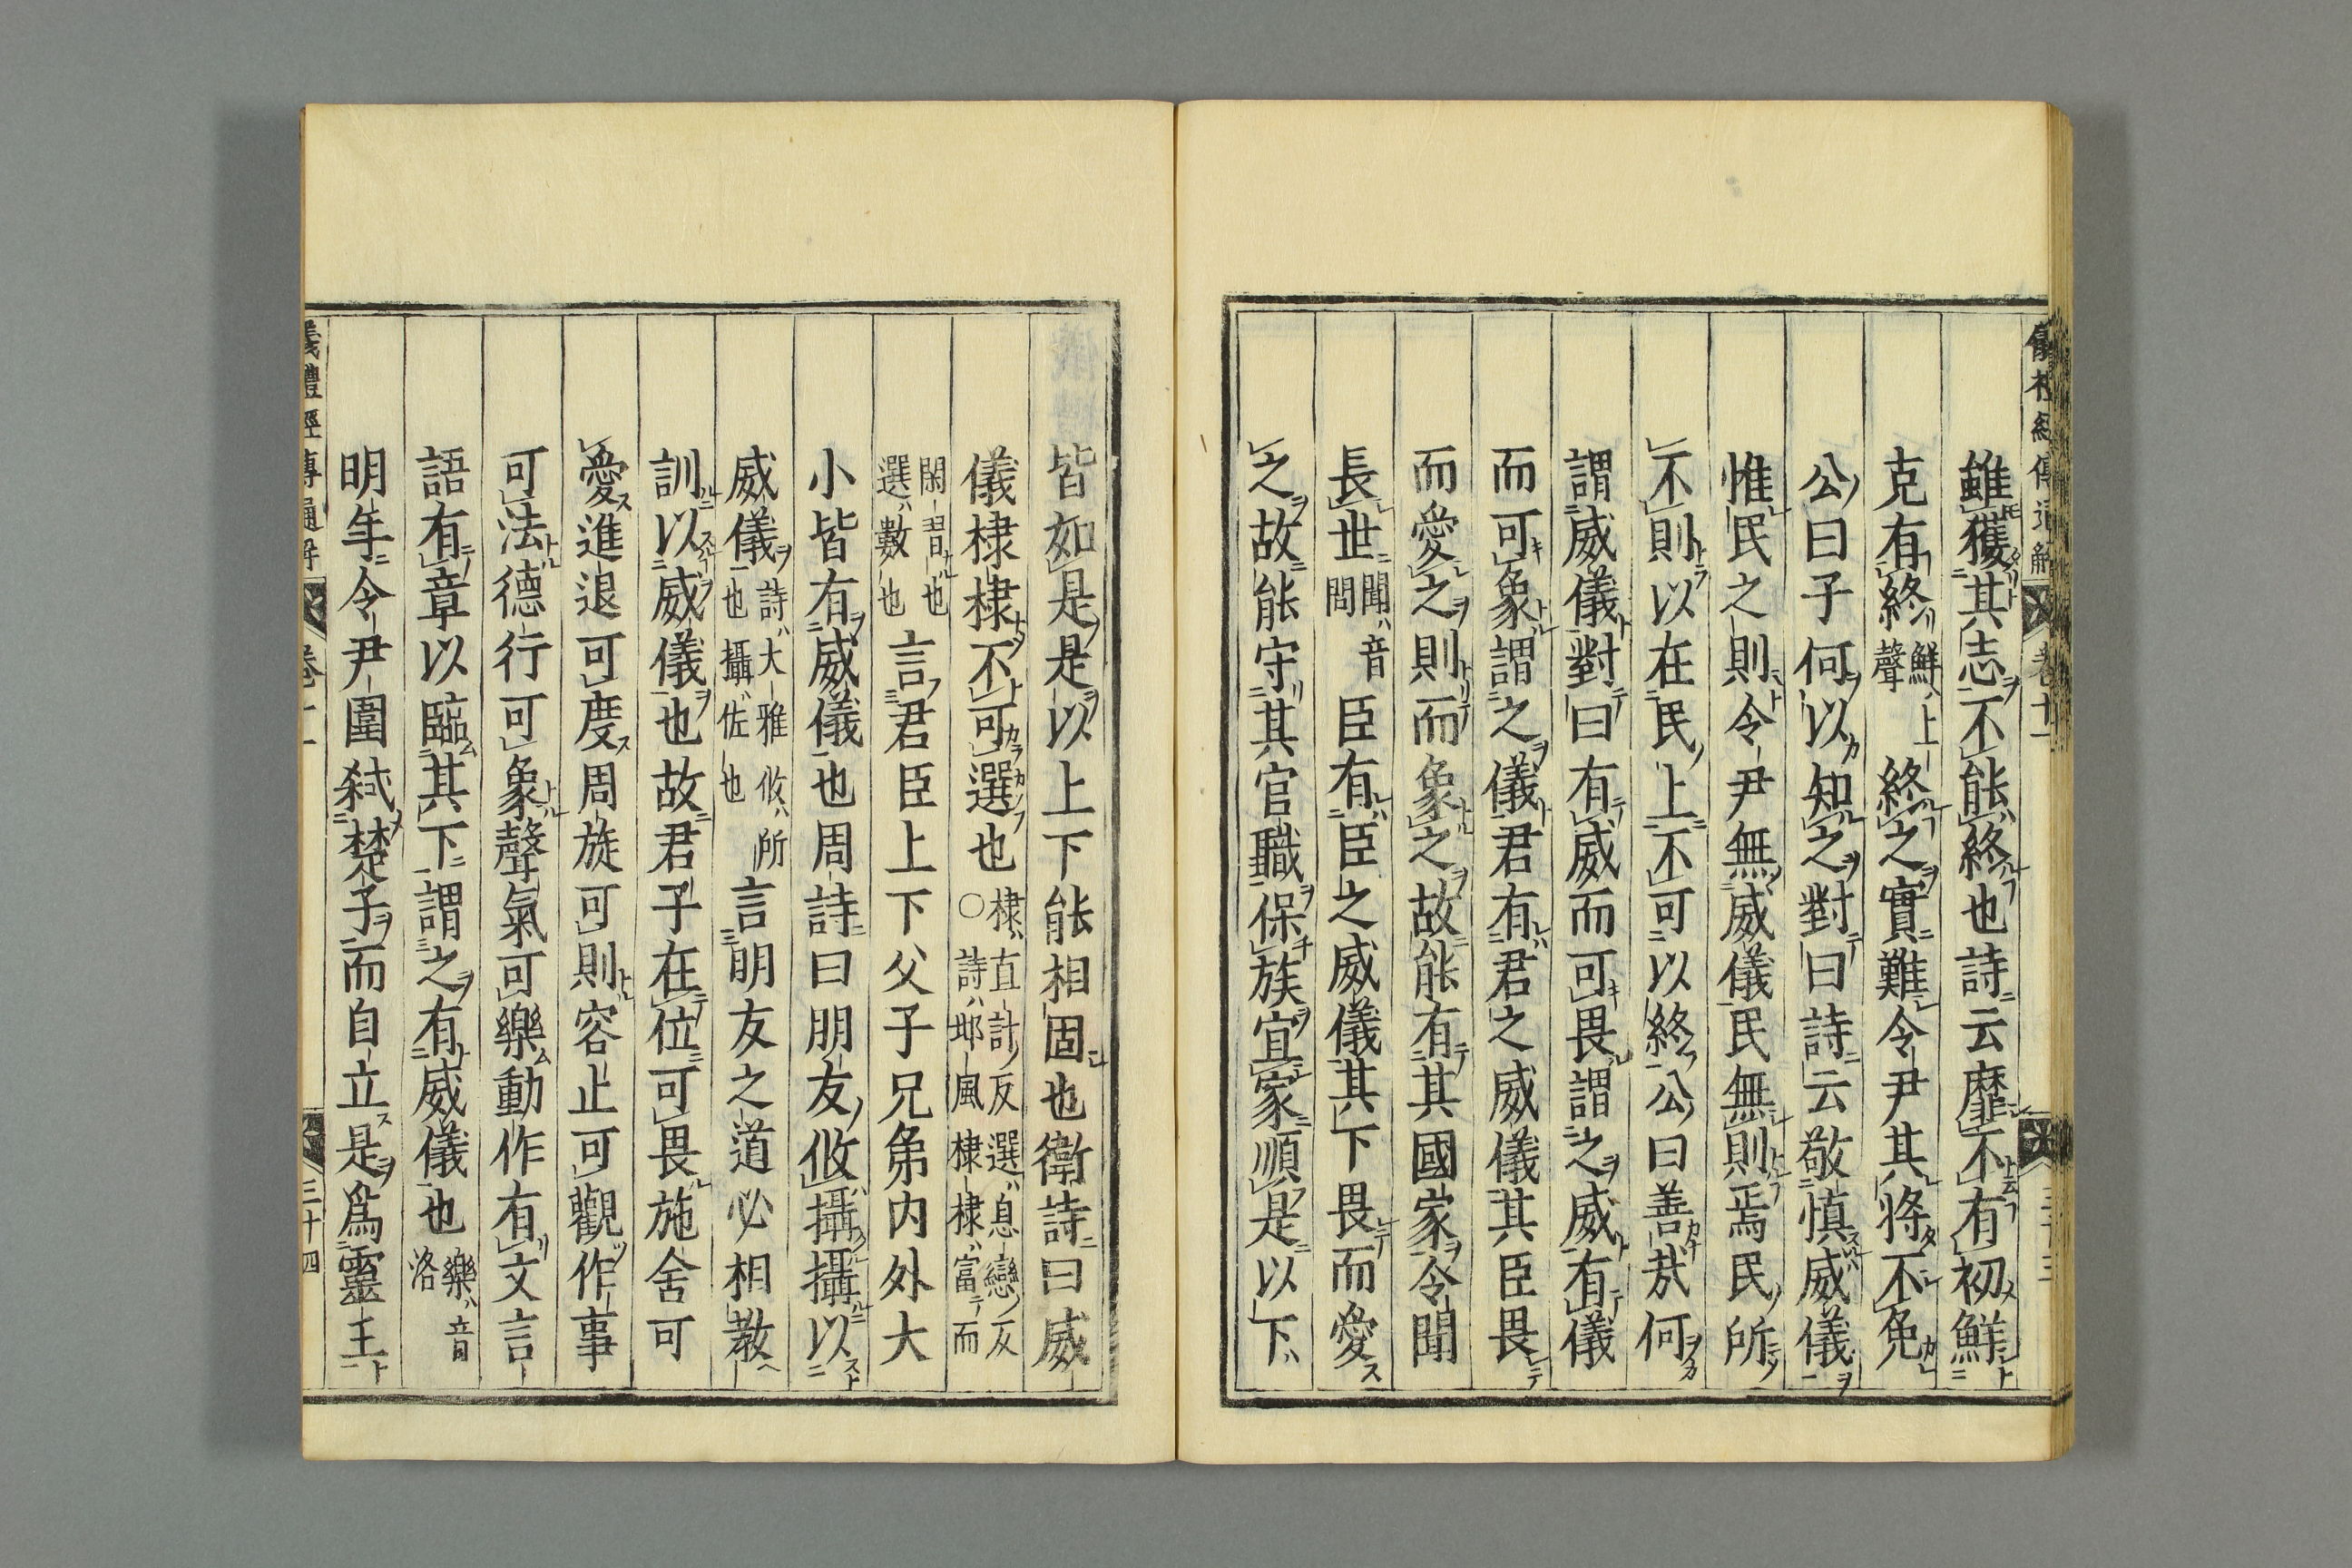 雖獲其志不能終也詩云靡不有初鮮
克有終鮮上聲終之實難令尹其將不免
公曰子何以知之對曰詩云敬慎威儀
惟民之則令尹無威儀民無則焉民所
不則以在民上不可以終公曰善哉何
謂威儀對曰有威而可畏謂之威有儀
而可象謂之儀君有君之威儀其臣畏
而愛之則而象之故能有其國家令聞
長世聞音問臣有臣之威儀其下畏而愛
之故能守其官職保族宜家順是以下
皆如是是以上下能相固也衛詩曰威
儀棣棣不可選也棣直計反選息戀反○詩邶風棣棣富而
閑習也選數也言君臣上下父子兄弟內外大
小皆有威儀也周詩曰朋友攸攝攝以
威儀詩大雅攸所也攝佐也言朋友之道必相教
訓以威儀也故君子在位可畏施舍可
愛進退可度周旋可則容止可觀作事
可法德行可象聲氣可樂動作有文言
語有章以臨其下謂之有威儀也樂音洛
明年令尹圍弒楚子而自立是爲靈王
儀禮經傳通解 卷十一 三十四